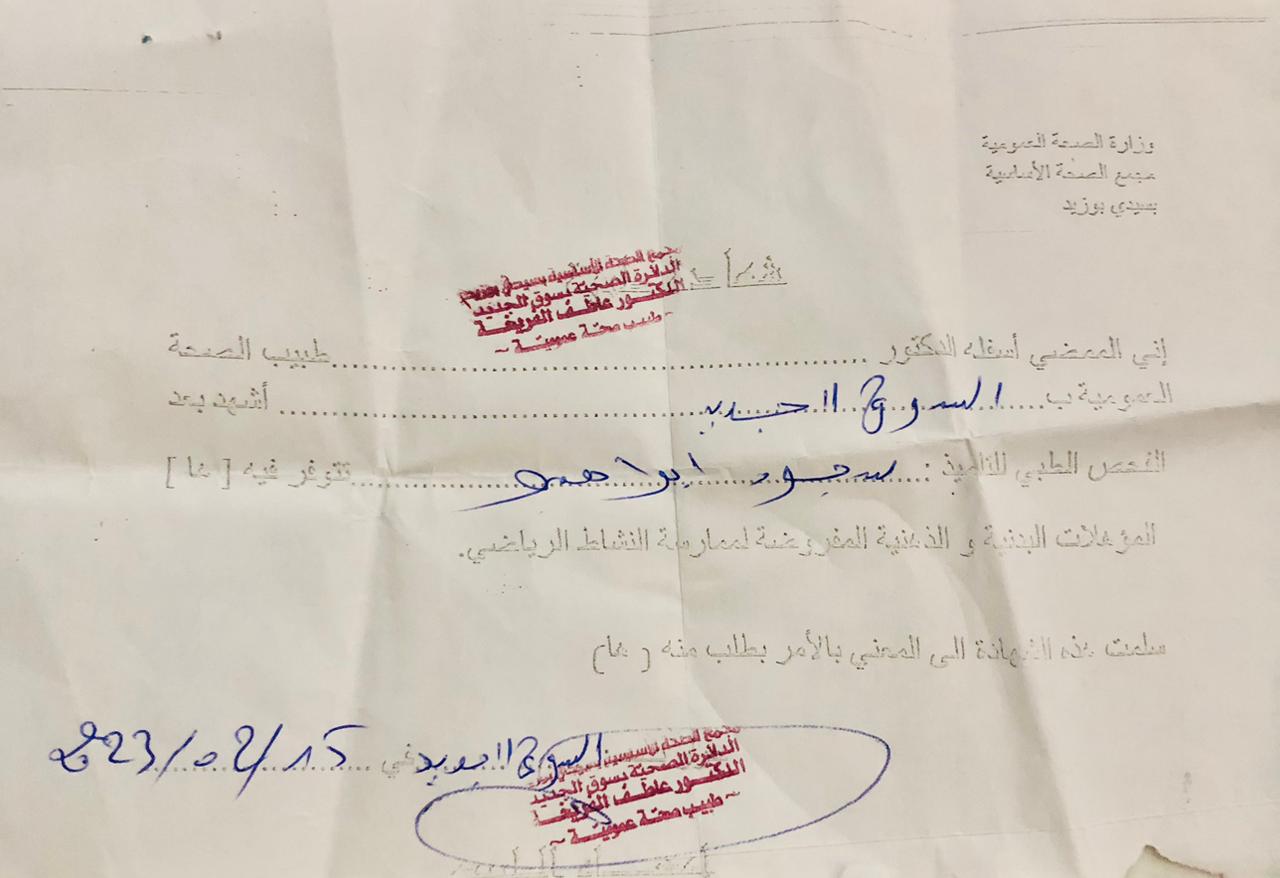 وزارة الصحة العمومية
مجمع الصحة الأساسية
بسيدي بوزيد
مجمع الصحة الأساسية بسيدي بوزيد
الدائرة الصحية بسوق الجديد
الدكتور عاطف
~ طبيب صحة عمومية ~
إني الممضي أسفله الدكتور ........ طبيب الصحة
العمومية ب ..... السوق الجديد ........ أشهد بعد
الفحص الطبي للتلميذ : ........ تتوفر فيه [ ها ]
المؤهلات البدنية و الذهنية المفروضة لممارسة النشاط الرياضي.
سلمت هذه الشهادة الى المعني بالأمر بطلب منه ( ها)
السوق الجديد في 2023/02/15
مجمع الصحة الأساسية
الدائرة الصحية بسوق الجديد
الدكتور عاطف
~ طبيب صحة عمومية ~